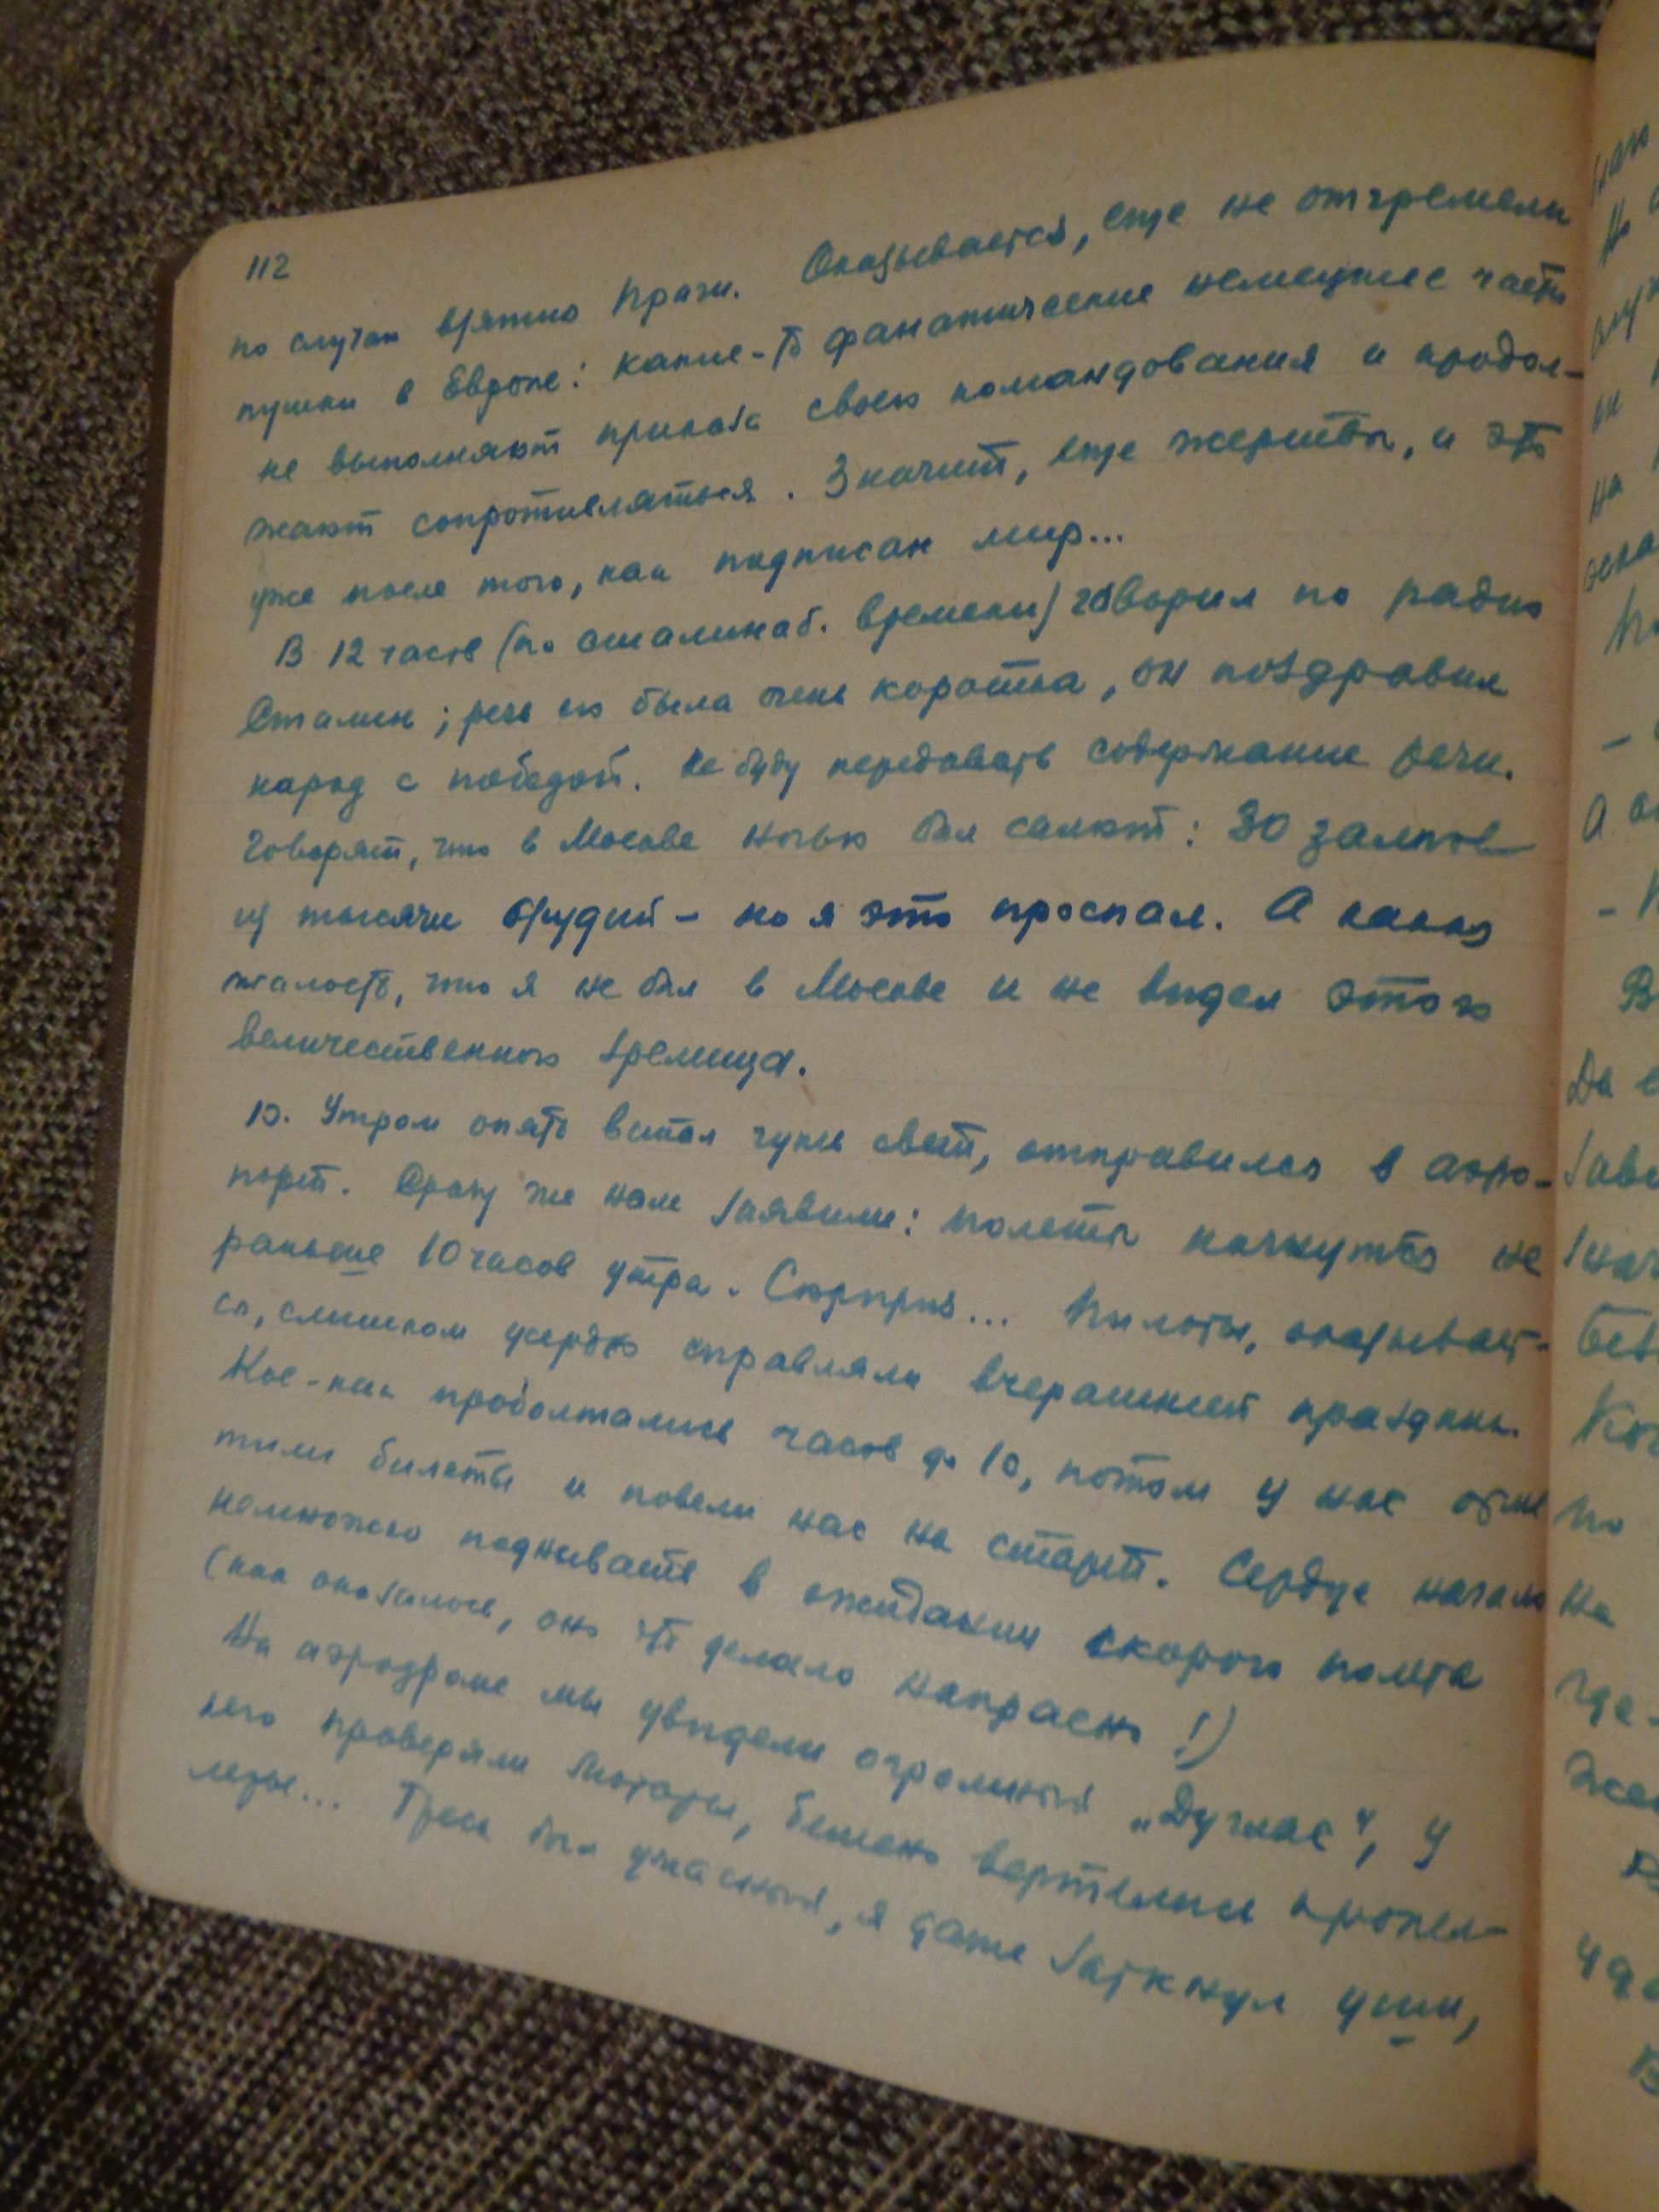 112
по случаю взятия Праги. Оказывается, еще не отгремели
пушки в Европе: какие-то фанатические немецкие части
не выполняют приказа своего командования и продол-
жают сопротивляться. Значит, еще жертвы, и это
уже после того, как подписан мир...
В 12 часов (по сталинаб. времени) говорил по радио
Сталин; речь его была очень коротка, он поздравил
народ с победой. Не буду передавать содержание речи.
Говорят, что в Москве ночью был салют: 30 залпов
из тысячи орудий – но я это проспал. А какая
жалость, что я не был в Москве и не видел этого
величественного зрелища.
10. Утром опять встал чуть свет, отправился в аэро-
порт. Сразу же нам заявили: полеты начнутся не
раньше 10 часов утра. Сюрприз... Пилоты, оказывает-
ся, слишком усердно справляли вчерашний праздник.
Кое-как проболтались часов до 10, потом у нас отме
тили билеты и повели нас на старт. Сердце начало
немножко поднывать в ожидании скорого полета
(как оказалось, оно это делало напрасно!)
На аэродроме мы увидели огромный „Дуглас“, у
него проверяли моторы, бешено вертелись пропел-
леры... Треск был ужасный, я даже заткнул уши,